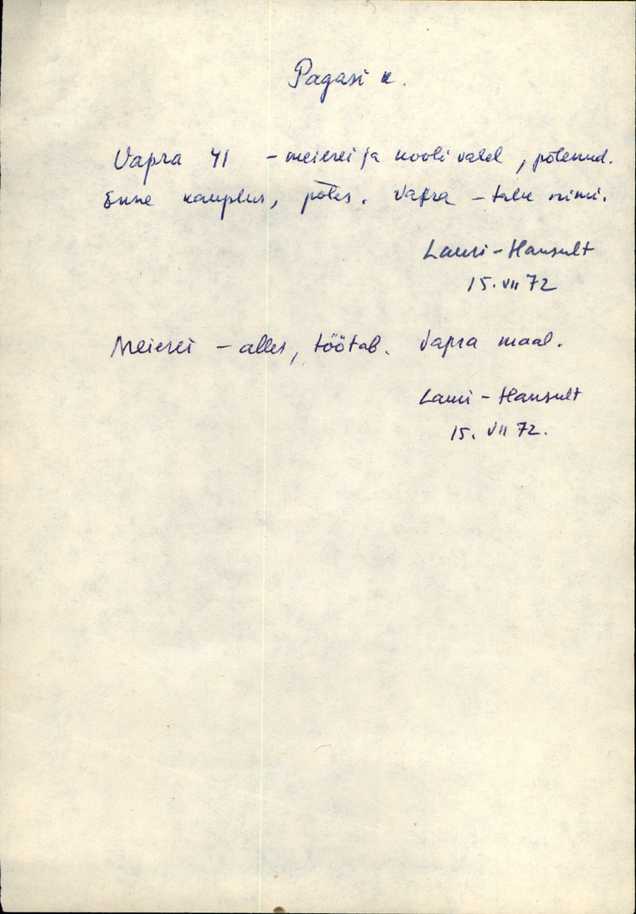 Pagasi k.
Vapra 41 - meierei ja kooli vahel, põlenud.
Enne kauplus, põles. Vapra - talu nimi.
Lauri-Hansult
15. VII 72
Meierei - alles, töötab. Vapra maal.
Lauri - Hansult
15. VII 72.